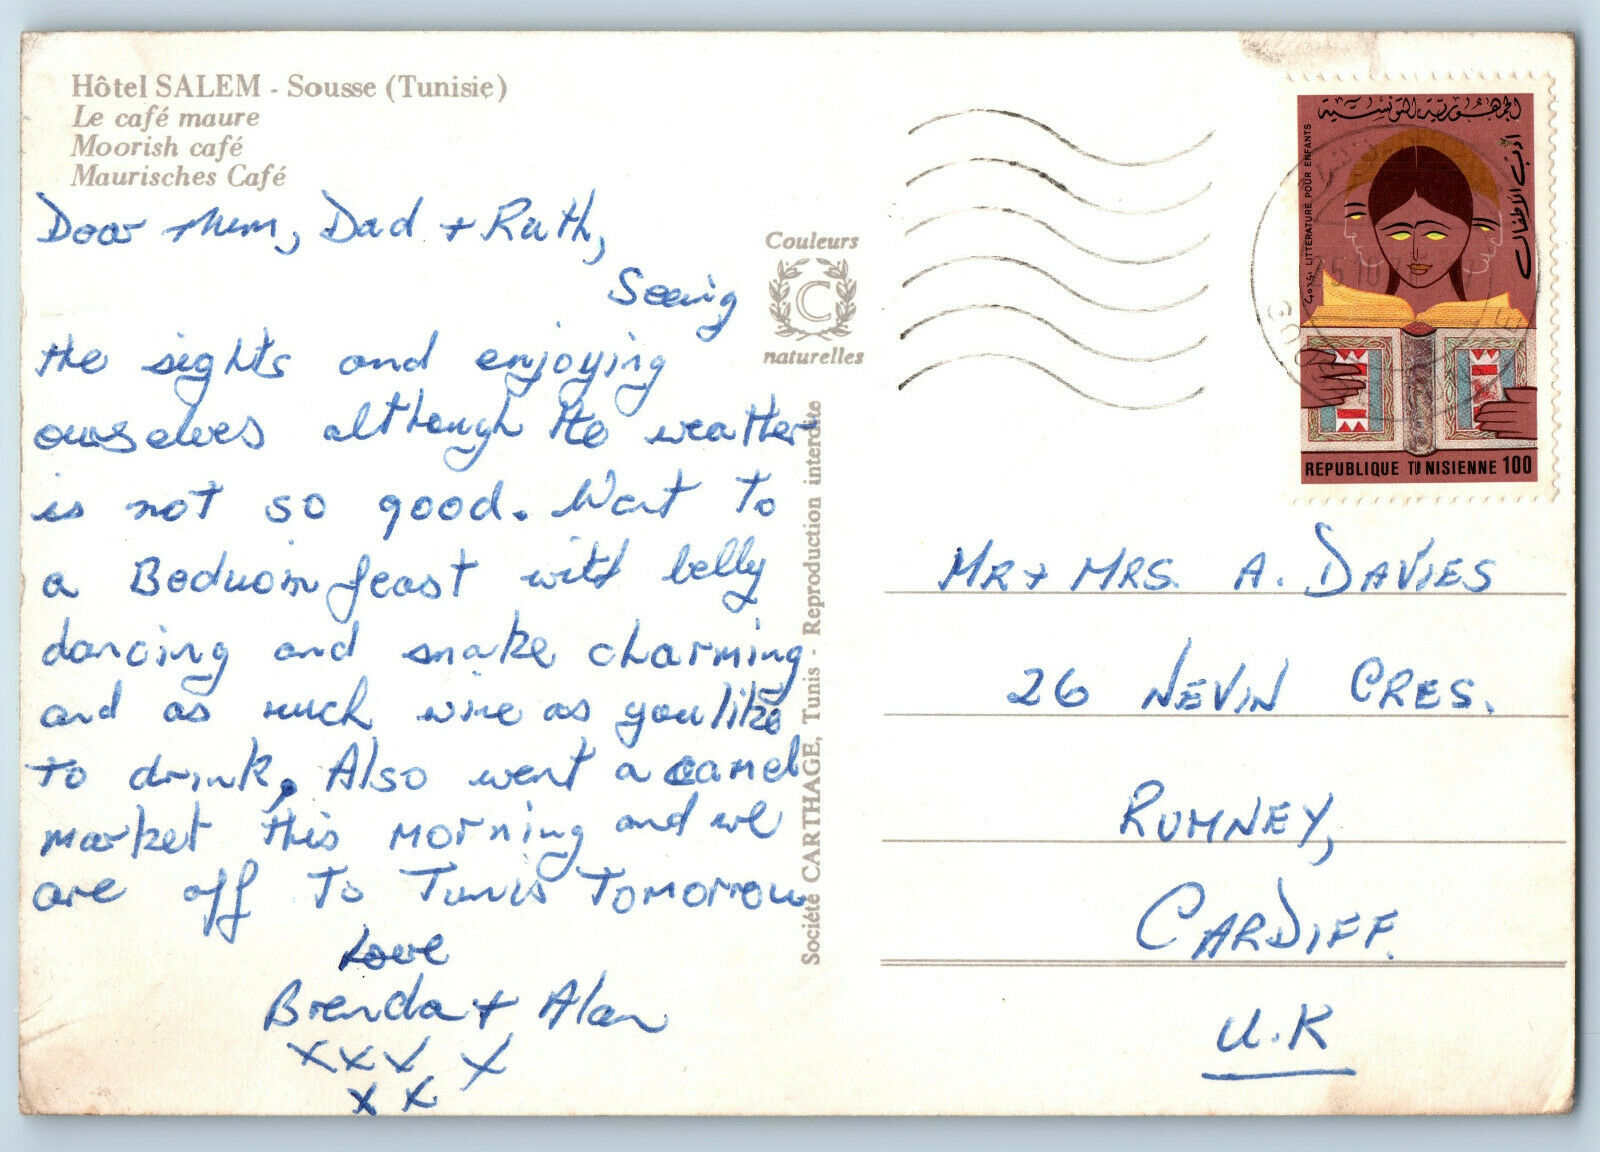 Hôtel SALEM - Sousse (Tunisie)
Le café maure
Moorish café
Maurisches Café
Dear Mum, Dad + Ruth,
Seeing
the sights and enjoying
ourselves although the weather
is not so good. Went to
a Bedouin feast with belly
dancing and snake charming
and as much wine as you like
to drink. Also went a camel
market this morning and we
are off to Tunis Tomorrow
Love
Brenda + Alan
x x x x
x x
Couleurs
C
naturelles
Société CARTHAGE, Tunis - Reproduction interdite
الجمهورية التونسية
أدب الأطفال
LITTERATURE POUR ENFANTS
REPUBLIQUE TUNISIENNE 100
MR + MRS. A. DAVIES
26 NEVIN CRES.
RUMNEY,
CARDIFF.
U.K